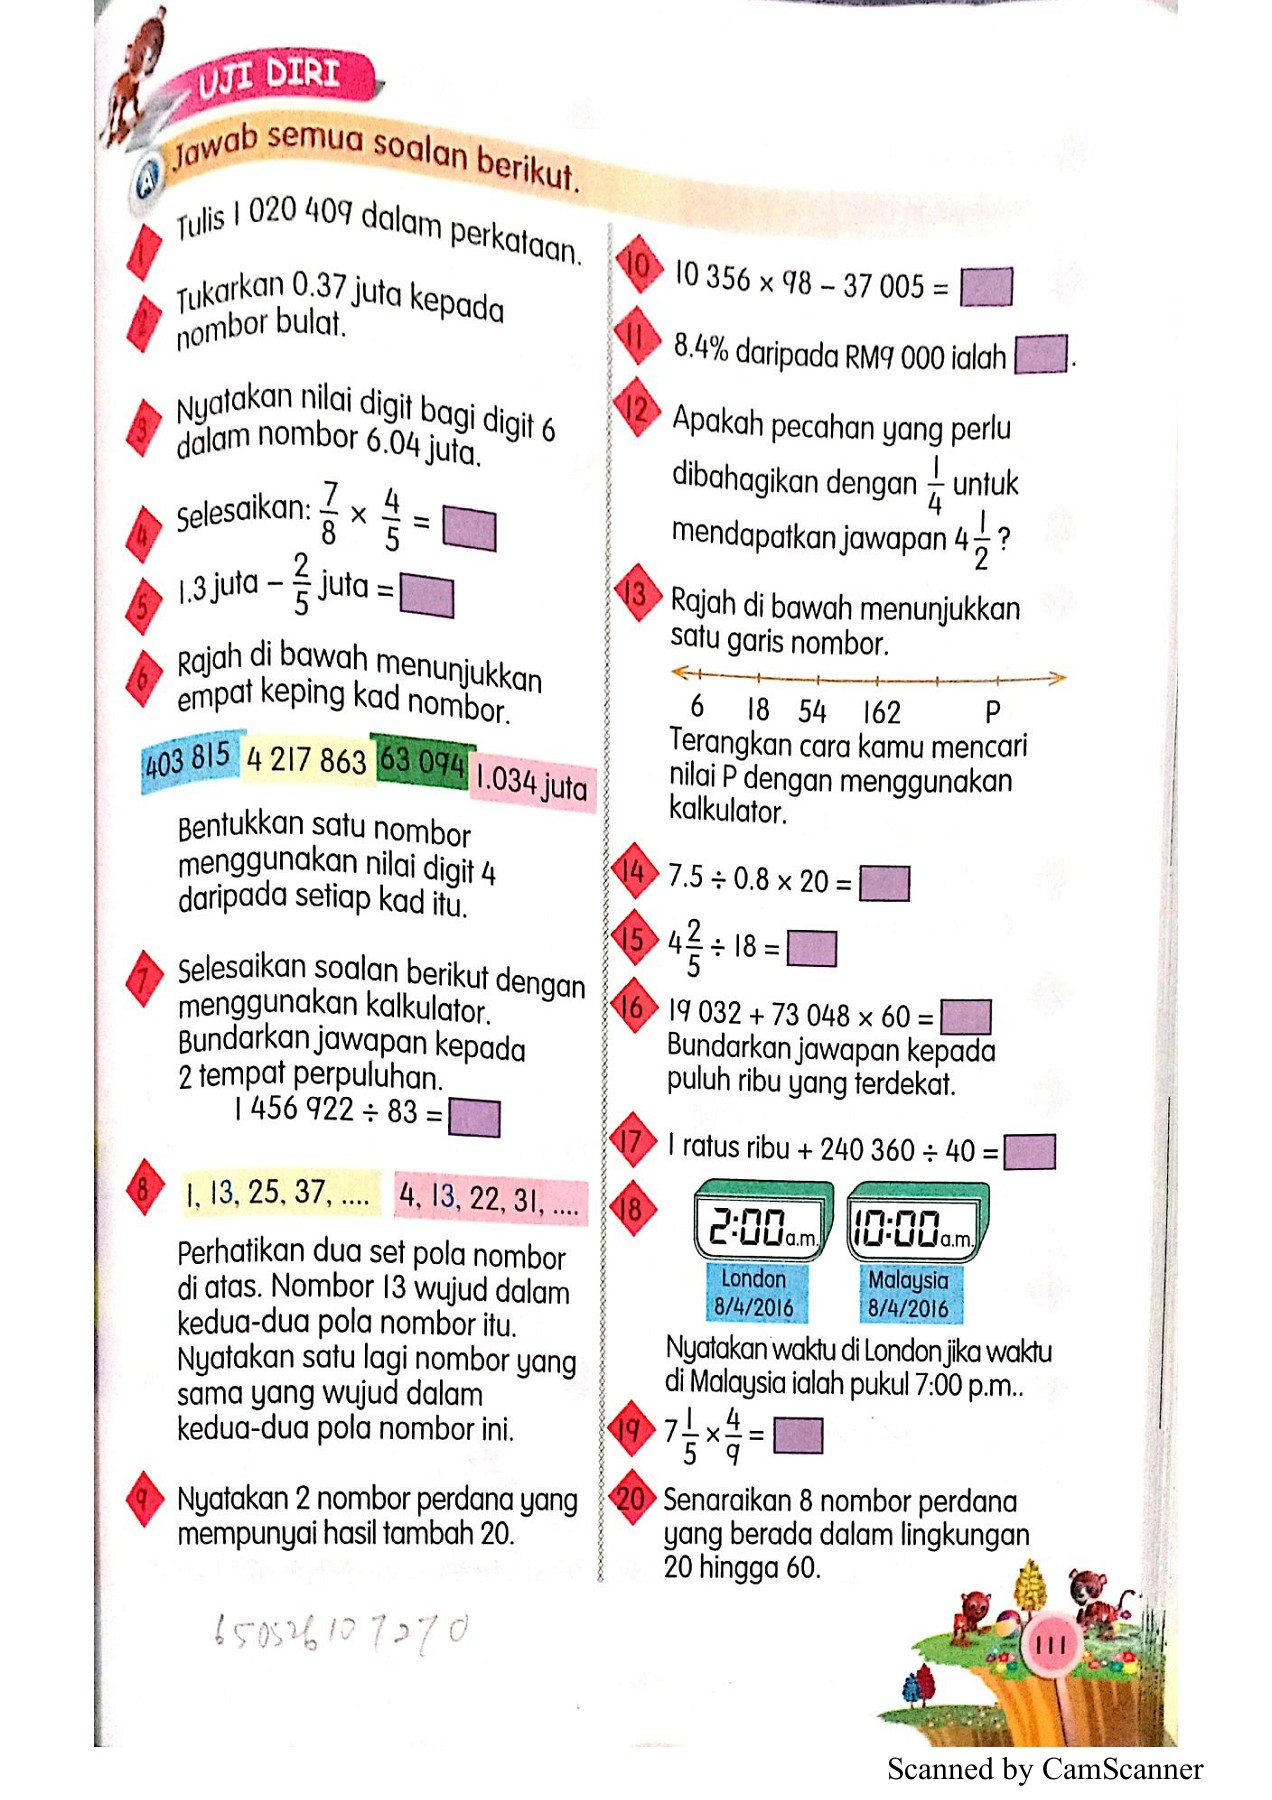 UJI DIRI
A Jawab semua soalan berikut.
1 Tulis 1 020 409 dalam perkataan.
2 Tukarkan 0.37 juta kepada
nombor bulat.
3 Nyatakan nilai digit bagi digit 6
dalam nombor 6.04 juta.
4 Selesaikan: 7/8 × 4/5 =
5 1.3 juta – 2/5 juta =
6 Rajah di bawah menunjukkan
empat keping kad nombor.
403 815 4 217 863 63 094 1.034 juta
Bentukkan satu nombor
menggunakan nilai digit 4
daripada setiap kad itu.
7 Selesaikan soalan berikut dengan
menggunakan kalkulator.
Bundarkan jawapan kepada
2 tempat perpuluhan.
1 456 922 ÷ 83 =
8 1, 13, 25, 37, .... 4, 13, 22, 31, ....
Perhatikan dua set pola nombor
di atas. Nombor 13 wujud dalam
kedua-dua pola nombor itu.
Nyatakan satu lagi nombor yang
sama yang wujud dalam
kedua-dua pola nombor ini.
9 Nyatakan 2 nombor perdana yang
mempunyai hasil tambah 20.
10 10 356 × 98 – 37 005 =
11 8.4% daripada RM9 000 ialah .
12 Apakah pecahan yang perlu
dibahagikan dengan 1/4 untuk
mendapatkan jawapan 4 1/2 ?
13 Rajah di bawah menunjukkan
satu garis nombor.
6 18 54 162 P
Terangkan cara kamu mencari
nilai P dengan menggunakan
kalkulator.
14 7.5 ÷ 0.8 × 20 =
15 4 2/5 ÷ 18 =
16 19 032 + 73 048 × 60 =
Bundarkan jawapan kepada
puluh ribu yang terdekat.
17 1 ratus ribu + 240 360 ÷ 40 =
18 2:00 a.m. 10:00 a.m.
London Malaysia
8/4/2016 8/4/2016
Nyatakan waktu di London jika waktu
di Malaysia ialah pukul 7:00 p.m..
19 7 1/5 × 4/9 =
20 Senaraikan 8 nombor perdana
yang berada dalam lingkungan
20 hingga 60.
111
Scanned by CamScanner